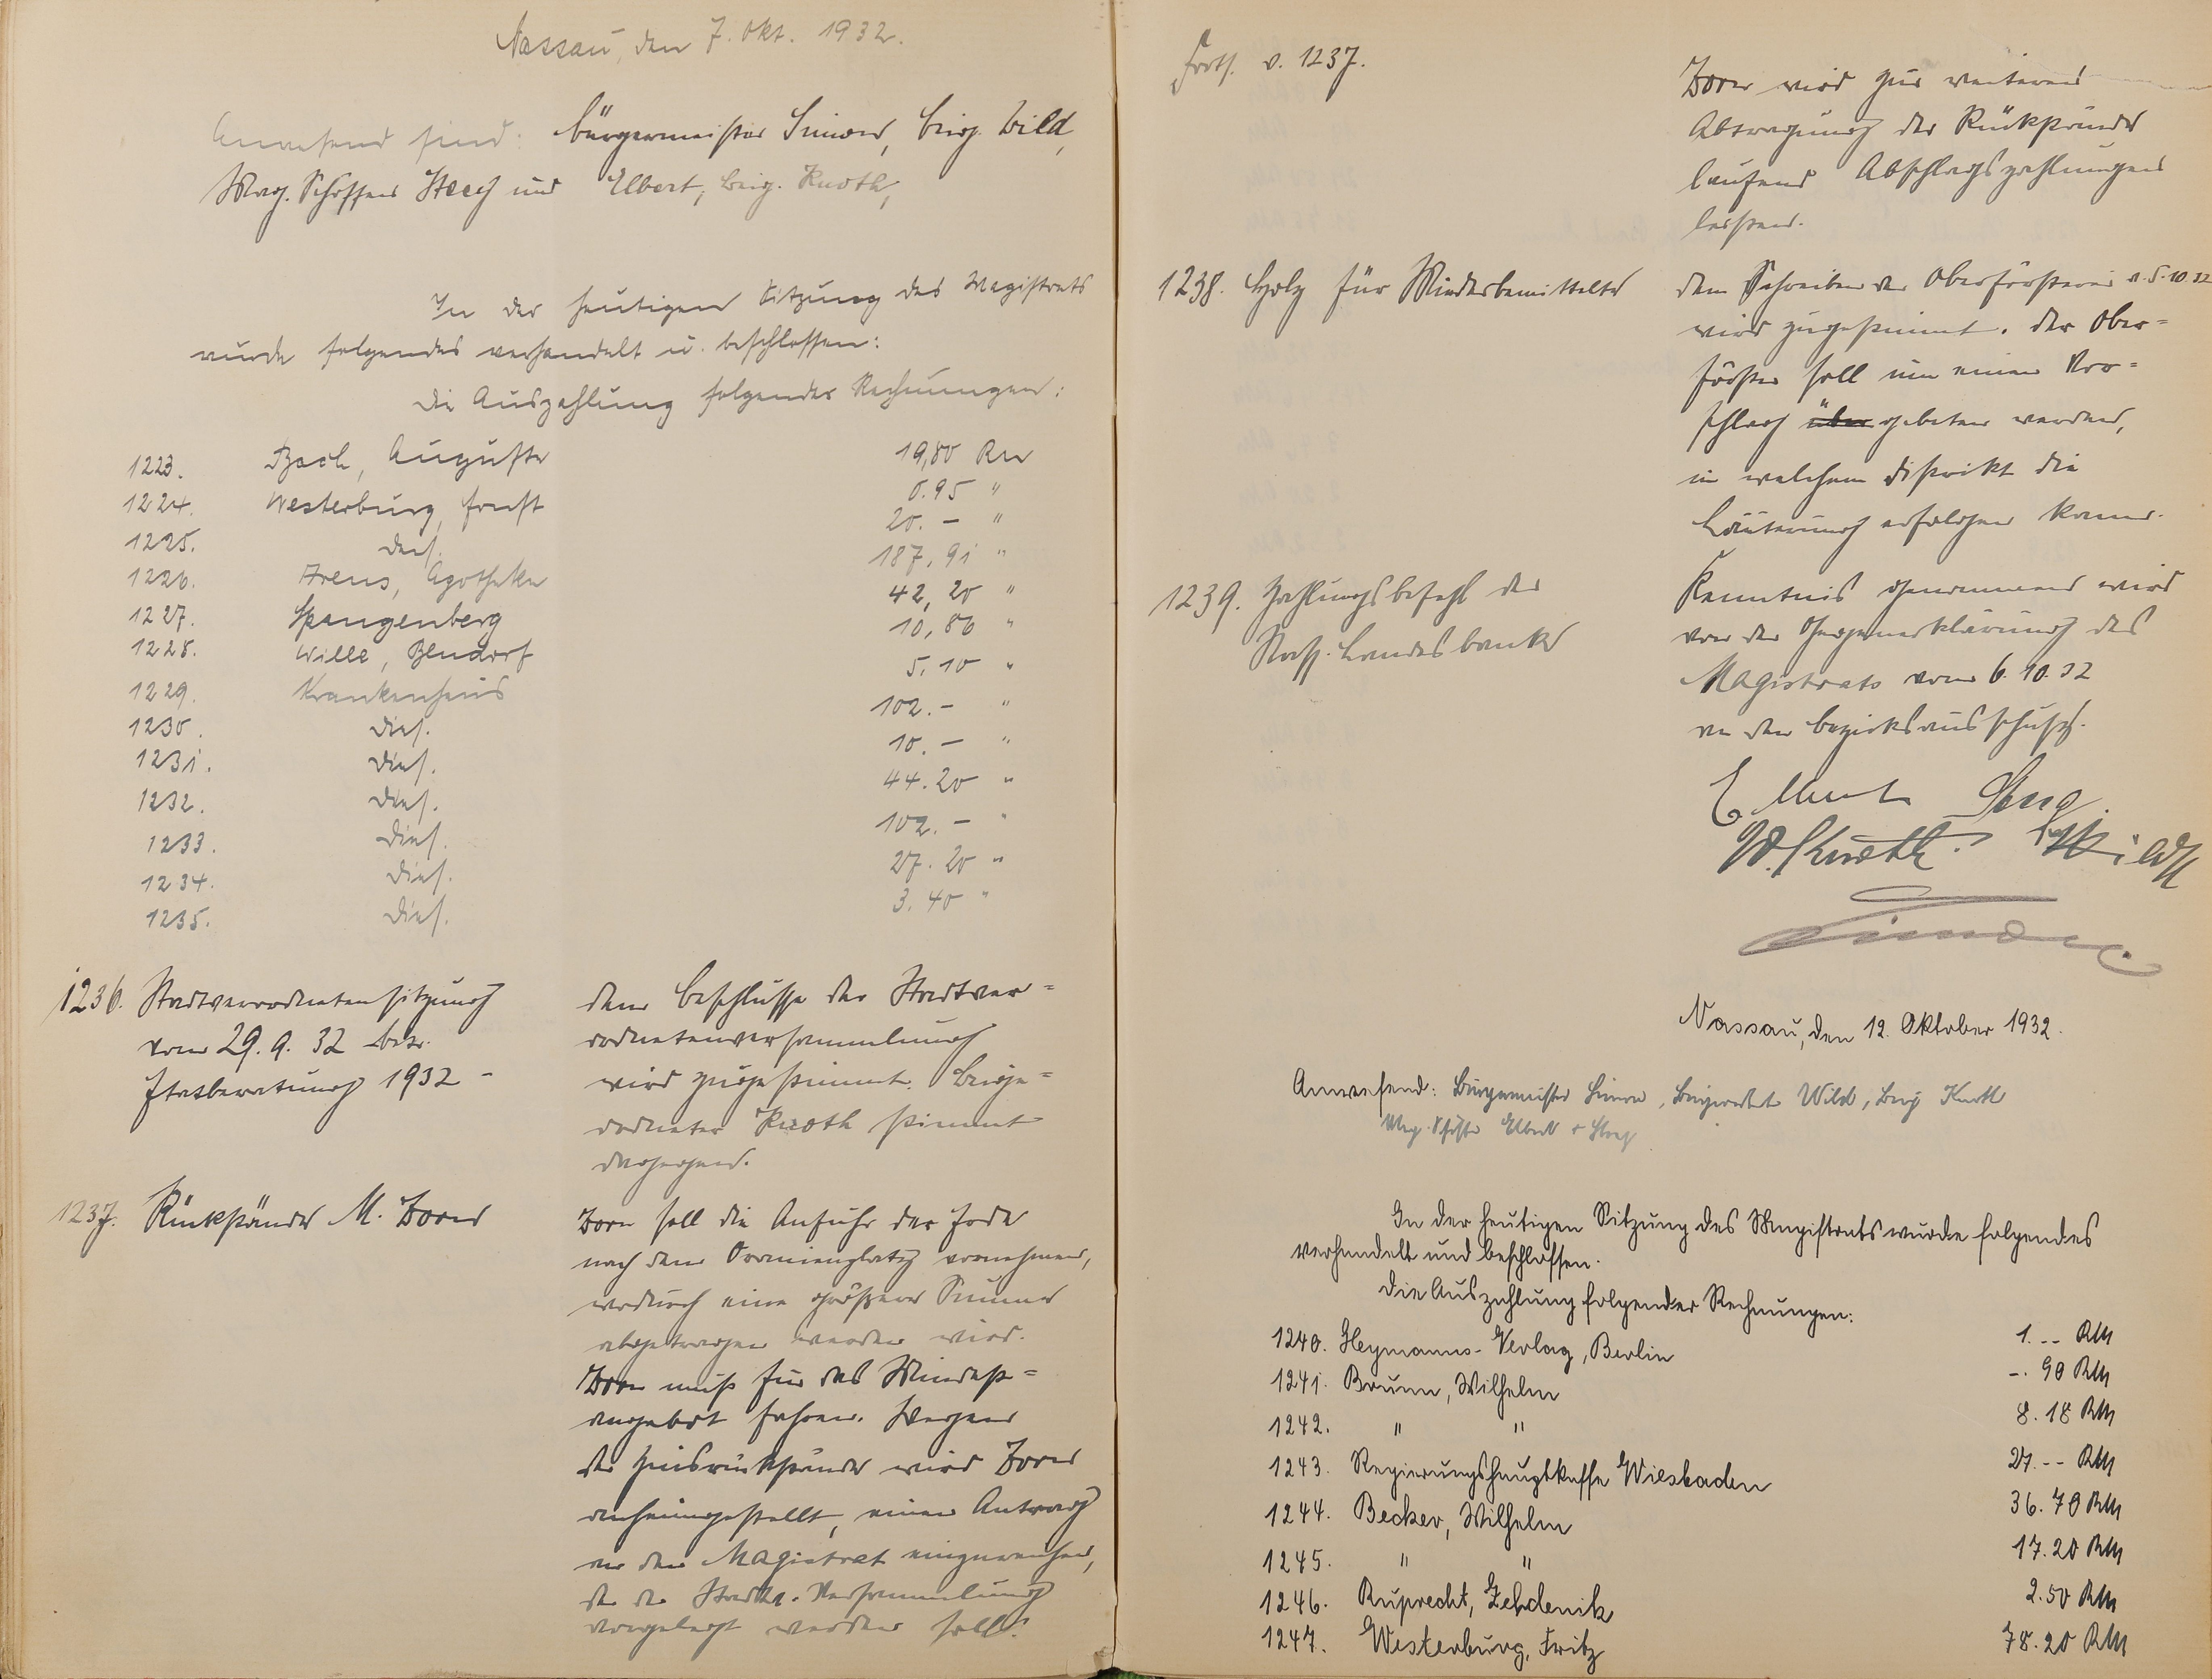 Nassau, den 7. Okt. 1932.
Anwesend sind: Bürgermeister Simon, Beig. Wild,
Mag. Schöffen Steeg und Elbert, Beig. Knoth,
In der heutigen Sitzung des Magistrats
wurde folgendes verhandelt u. beschlossen:
Die Auszahlung folgender Rechnungen:
1223. Bach, Auguste 19,80 RM
1224. Westerburg, Ernst 0.95 "
1225. Ders. 20. – "
1226. Arens, Apotheke 187,91 "
1227. Spangenberg 42,20 "
1228. Wille, Bendorf 10,86 "
1229. Krankenhaus 5,10 "
1230. Dies. 102. – "
1231. Dies. 10. – "
1232. Dies. 44.20 "
1233. Dies. 102. – "
1234. Dies. 27.20 "
1235. Dies. 3.40 "
1236. Stadtverordnetensitzung
vom 29.9.32 betr.
Etatsberatung 1932 –
Dem Beschlusse der Stadtver=
ordnetenversammlung
wird zugestimmt. Beige=
ordneter Knoth stimmt
dagegen.
1237. Rückstände M. Zorn
Zorn soll die Anfuhr der Erde
nach dem Oranienplatz vornehmen,
wodurch eine größere Summe
abgetragen werden wird.
Zorn muß für das Mindest=
angebot fahren. Wegen
der Zinsrückstände wird Zorn
anheimgestellt, einen Antrag
an den Magistrat einzureichen,
der der Stadtv. Versammlung
vorgelegt werden soll.
Forts. v. 1237.
Zorn wird zur weiteren
Abtragung der Rückstände
laufend Abschlagszahlungen
leisten.
1238. Holz für Minderbemittelte
Dem Schreiben der Oberförsterei v. 5.10.32
wird zugestimmt. Der Ober=
förster soll um einen Vor=
schlag über gebeten werden,
in welchem Distrikt die
Läuterung erfolgen kann.
1239. Zahlungsbefehl der
Nass. Landesbank
Kenntnis genommen wird
von der Gegenerklärung des
Magistrats vom 6.10.32
an den Bezirksausschuß.
Elbert Steeg
W. Knoth. Wild
Simon
Nassau, den 12. Oktober 1932.
Anwesend: Bürgermeister Simon, Beigeordnet Wild, Beig Knoth
Mag. Schöffe Elbert + Steeg
In der heutigen Sitzung des Magistrats wurde folgendes
verhandelt und beschlossen.
Die Auszahlung folgender Rechnungen:
1240. Heymanns-Verlag, Berlin 1. -- RM
1241. Brunn, Wilhelm -. 90 RM
1242. " " 8.18 RM
1243. Regierungshauptkasse Wiesbaden 27.-- RM
1244. Becker, Wilhelm 36.70 RM
1245. " " 17.20 RM
1246. Ruprecht, Zehdenik 2.50 RM
1247. Westerburg, Fritz 78.20 RM